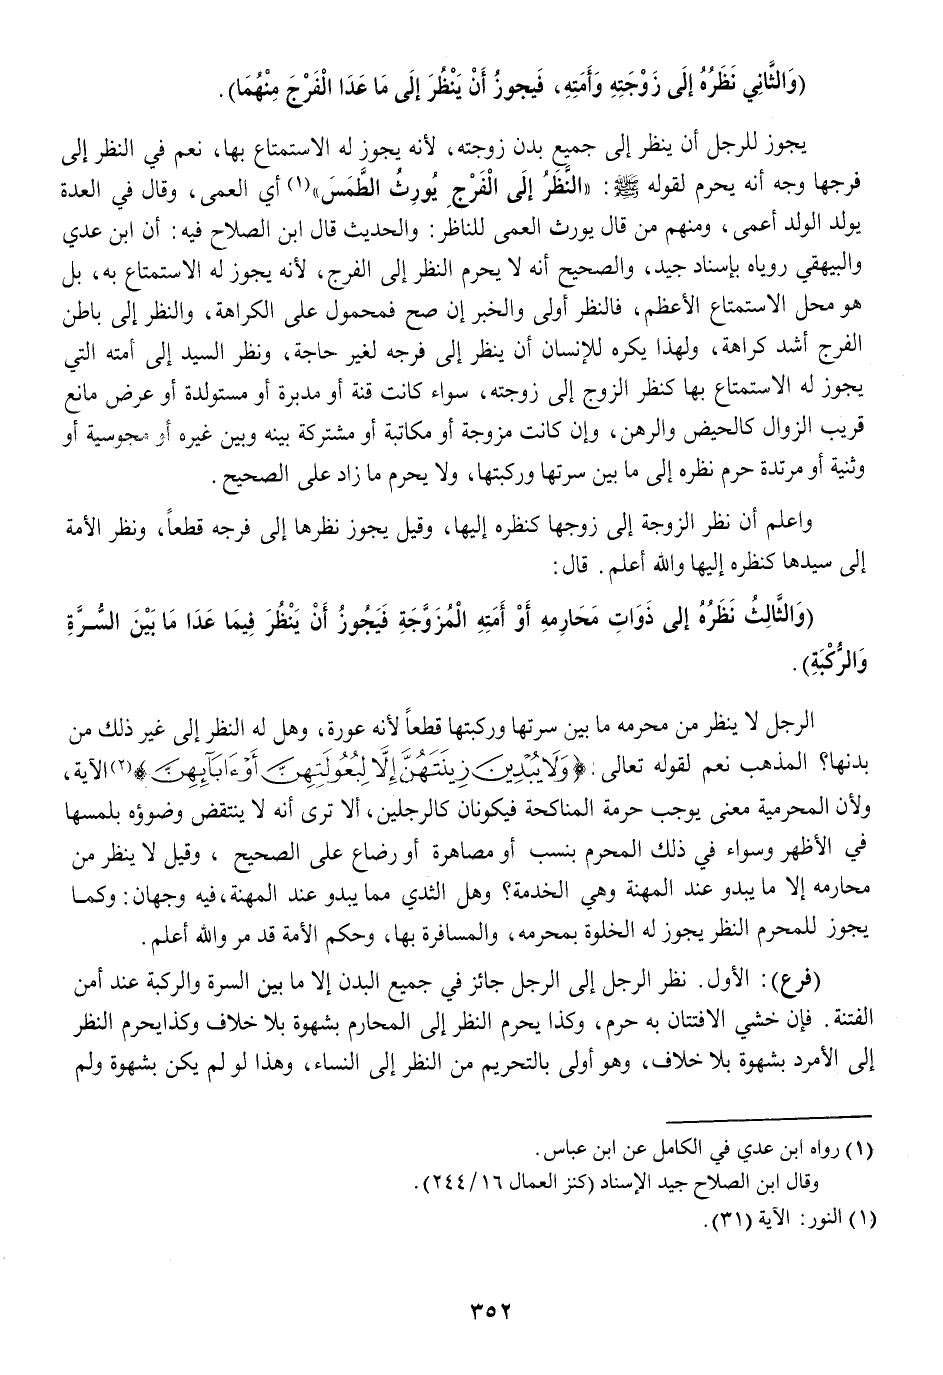 (وَالثَّانِي نَظَرُهُ إِلَى زَوْجَتِهِ وَأَمَتِهِ، فَيجوزُ أَنْ يَنْظُرَ إلَى مَا عَدَا الْفَرْجَ مِنْهُمَا).
يجوز للرجل أن ينظر إلى جميع بدن زوجته، لأنه يجوز له الاستمتاع بها، نعم في النظر إلى
فرجها وجه أنه يحرم لقوله ﷺ: «النَّظَرُ إلَى الْفَرْجِ يُورِثُ الطَّمَسَ»(١) أي العمى، وقال في العدة
يولد الولد أعمى، ومنهم من قال يورث العمى للناظر: والحديث قال ابن الصلاح فيه: أن ابن عدي
والبيهقي روياه بإسناد جيد، والصحيح أنه لا يحرم النظر إلى الفرج، لأنه يجوز له الاستمتاع به، بل
هو محل الاستمتاع الأعظم، فالنظر أولى والخبر إن صح فمحمول على الكراهة، والنظر إلى باطن
الفرج أشد كراهة، ولهذا يكره للإنسان أن ينظر إلى فرجه لغير حاجة، ونظر السيد إلى أمته التي
يجوز له الاستمتاع بها كنظر الزوج إلى زوجته، سواء كانت قنة أو مدبرة أو مستولدة أو عرض مانع
قريب الزوال كالحيض والرهن، وإن كانت مزوجة أو مكاتبة أو مشتركة بينه وبين غيره أو مجوسية أو
وثنية أو مرتدة حرم نظره إلى ما بين سرتها وركبتها، ولا يحرم ما زاد على الصحيح.
واعلم أن نظر الزوجة إلى زوجها كنظره إليها، وقيل يجوز نظرها إلى فرجه قطعاً، ونظر الأمة
إلى سيدها كنظره إليها والله أعلم. قال:
(وَالثَّالِثُ نَظَرُهُ إلى ذَوَاتِ مَحَارِمِهِ أَوْ أَمَتِهِ الْمُزَوَّجَةِ فَيَجُوزُ أَنْ يَنْظُرَ فِيمَا عَدَا مَا بَيْنَ السُّرَّةِ
وَالرُّكْبَةِ).
الرجل لا ينظر من محرمه ما بين سرتها وركبتها قطعاً لأنه عورة، وهل له النظر إلى غير ذلك من
بدنها؟ المذهب نعم لقوله تعالى: ﴿وَلَا يُبْدِينَ زِينَتَهُنَّ إِلَّا لِبُعُولَتِهِنَّ أَوْ ءَابَآئِهِنَّ﴾(٢) الآية،
ولأن المحرمية معنى يوجب حرمة المناكحة فيكونان كالرجلين، ألا ترى أنه لا ينتقض وضوؤه بلمسها
في الأظهر وسواء في ذلك المحرم بنسب أو مصاهرة أو رضاع على الصحيح ، وقيل لا ينظر من
محارمه إلا ما يبدو عند المهنة وهي الخدمة؟ وهل الثدي مما يبدو عند المهنة، فيه وجهان: وكما
يجوز للمحرم النظر يجوز له الخلوة بمحرمه، والمسافرة بها، وحكم الأمة قد مر والله أعلم.
(فرع): الأول. نظر الرجل إلى الرجل جائز في جميع البدن إلا ما بين السرة والركبة عند أمن
الفتنة. فإن خشي الافتتان به حرم، وكذا يحرم النظر إلى المحارم بشهوة بلا خلاف وكذا يحرم النظر
إلى الأمرد بشهوة بلا خلاف، وهو أولى بالتحريم من النظر إلى النساء، وهذا لو لم يكن بشهوة ولم
(١) رواه ابن عدي في الكامل عن ابن عباس.
وقال ابن الصلاح جيد الإسناد (كنز العمال ١٦/ ٢٤٤).
(١) النور: الآية (٣١).
٣٥٢